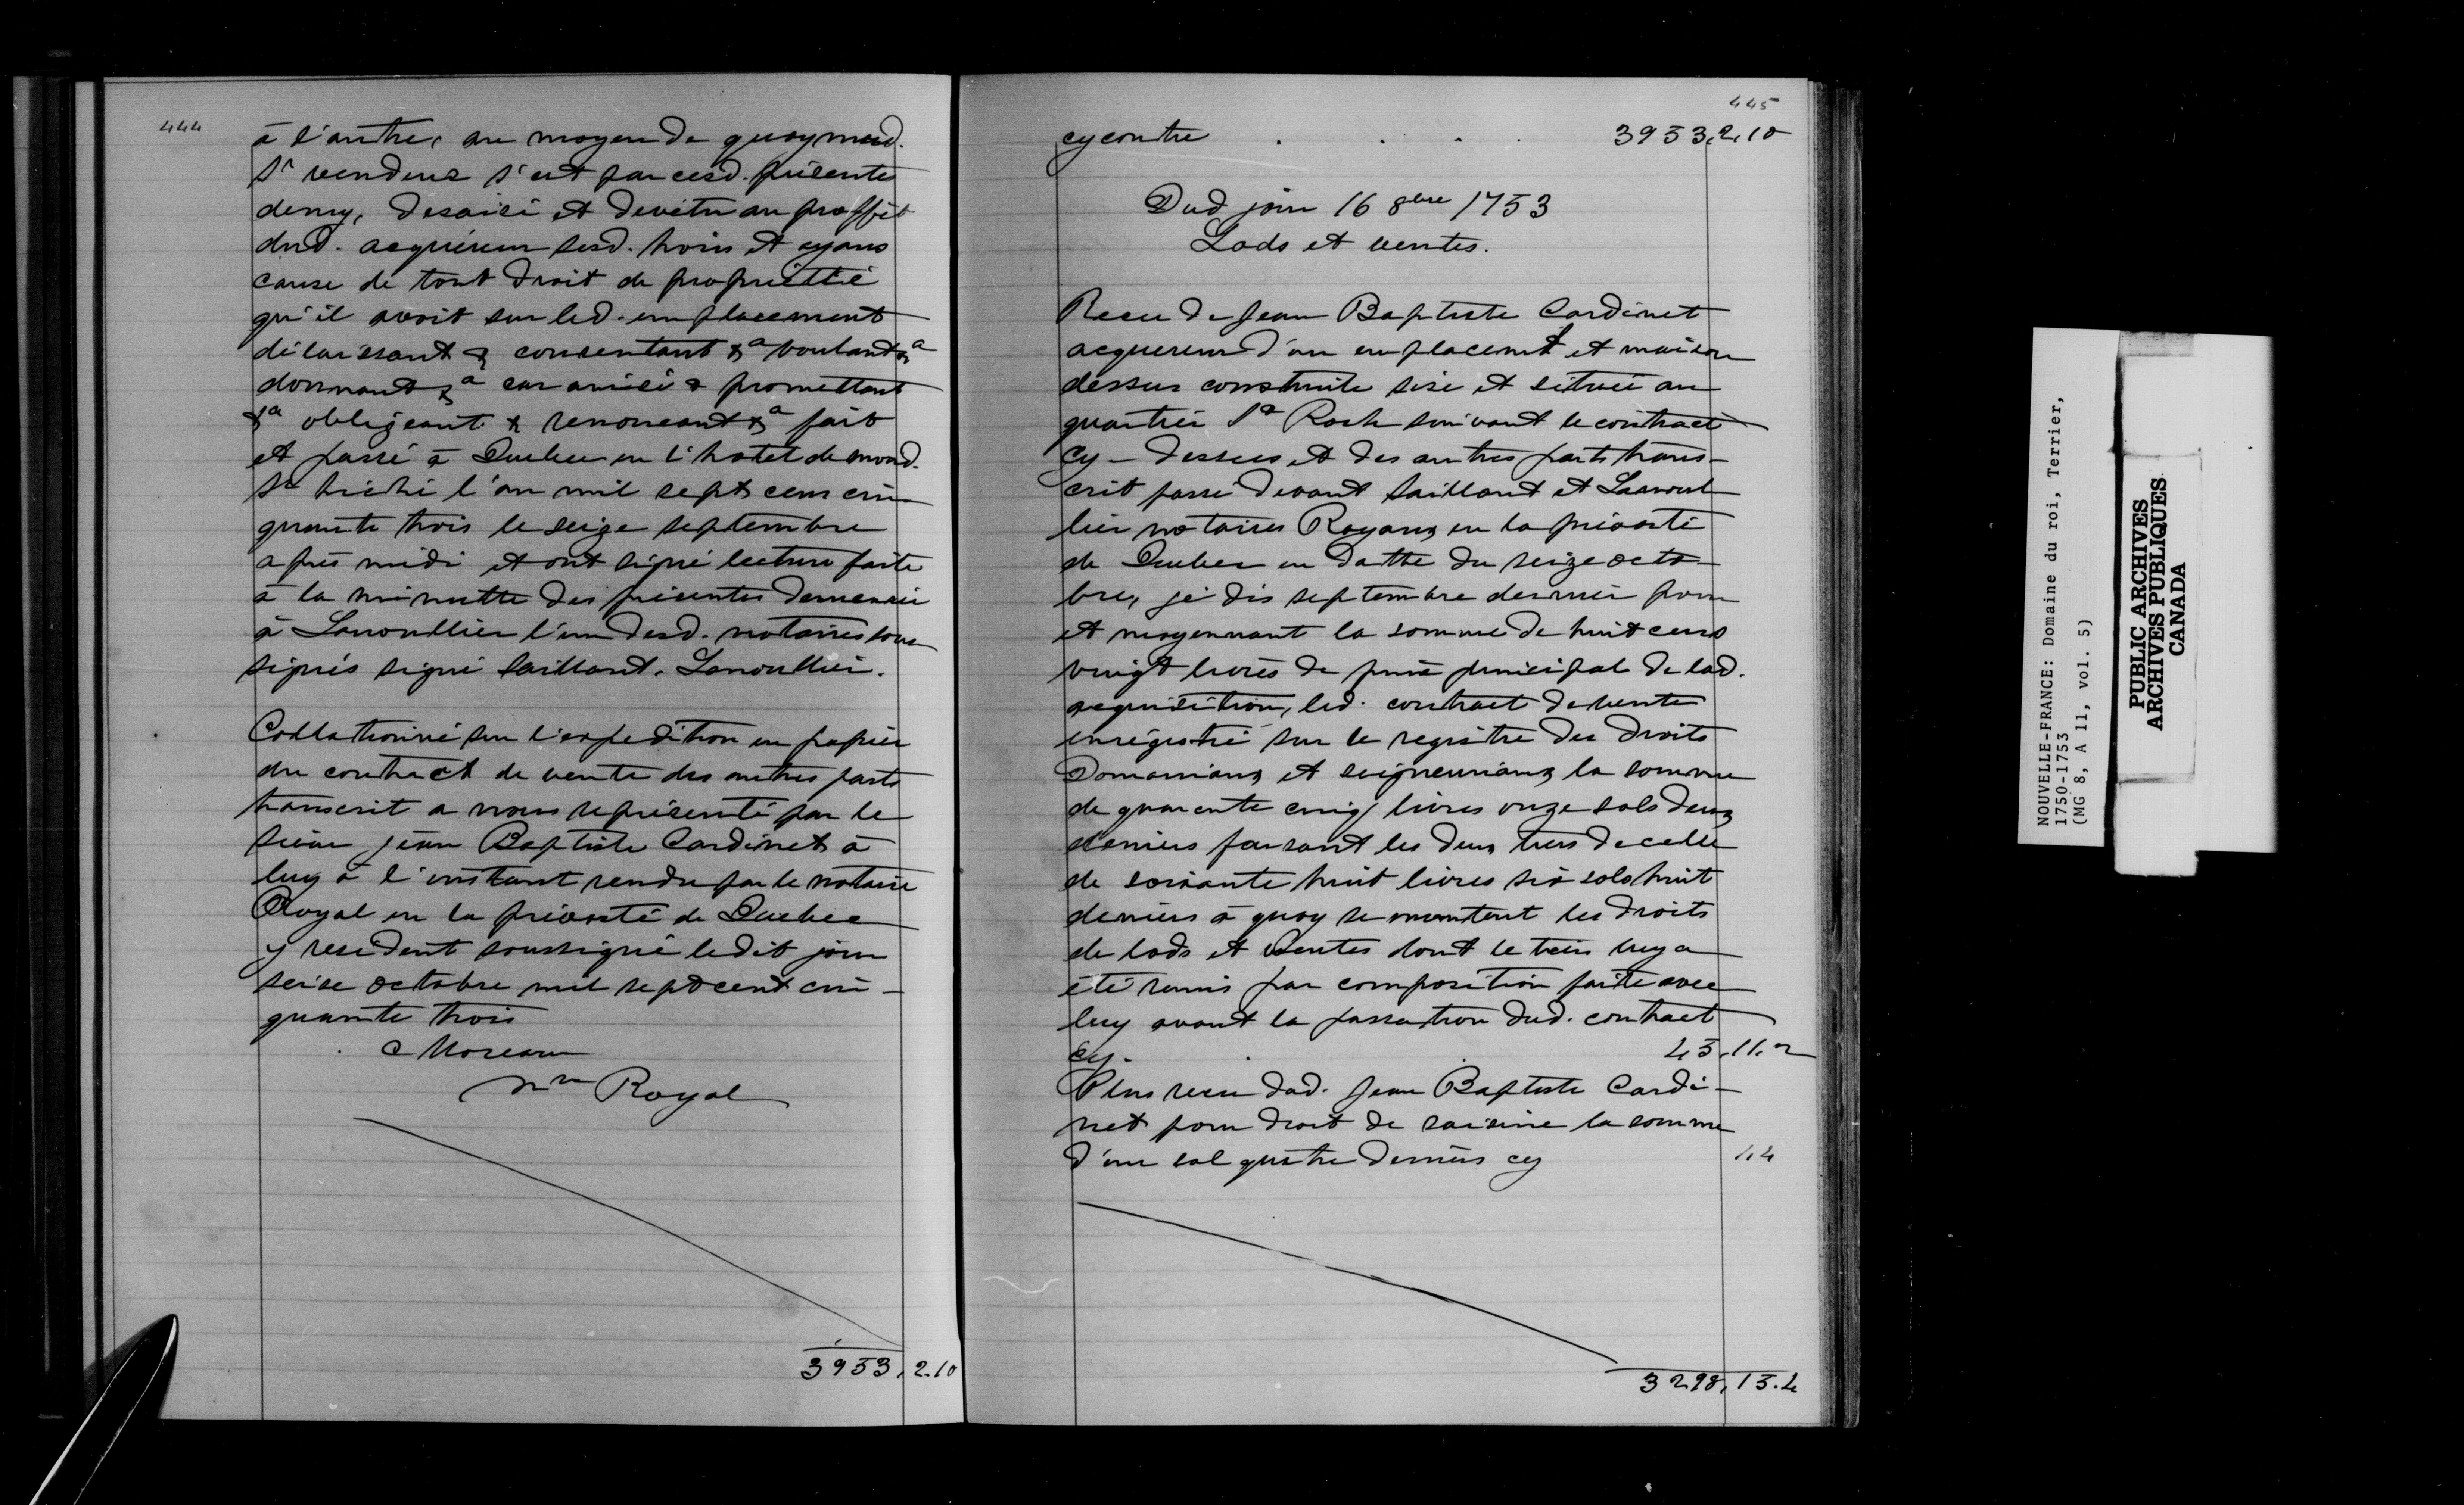 444
à l'autre, au moyen de quoy mond.
Sr vendeur s'est par cesd. présentes
demy, desaisi et devêtu au proffit
dud. acquéreur sesd. hoirs et ayans
cause de tout droit de propriétté
qu'il avoit sur led. emplacement
délaissant & consentant &a voulant &a
donnant &a car ainsi & promettant
&a obligeant & renonceant &a fait
et passé à Quebec en l'hotel de mond.
Sr hiché l'an mil sept cens cin
quante trois le seize septembre
après midi et ont signé lecture faite
à la minutte des présentes demeurée
à Lanoullier l'un desd. notaires sous
signés signé Saillant. Lanoullier.
Collationné sur l'expedition en papier
du contract de vente des autres parts
transcrit a nous représenté par le
sieur jean Baptiste Cardinet à
luy à l'instant rendu par le notaire
Royal en la prévosté de Quebec
y resident soussigné ledit jour
seise octobre mil sept cent cin-
quante trois
Moreau
nre Royal
3953.2.10
445
cy contre . . . . 3953.2.10
Dud jour 16 8bre 1753
Lods et ventes.
Recu de Jean Baptiste Cardinet
acquereur d'un emplacemt et maison
dessus construite sise et située au
quartier St Roch suivant le contract
cy-dessus et des autres parts trans-
crit passé devant Saillant et Lanoul
lier notaires Royaux en la prévosté
de Quebec en datte du seize octo-
bre, je dis septembre dernier pour
et moyennant la somme de huit cens
vingt livres de prix principal de lad.
acquisition, led. contract de vente
enregistré sur le registre des droits
Domaniaux et seigneuriaux la somme
de quarente cinq livres onze sols deux
deniers faisant les deux tiers de celle
de soixante huit livres six sols huit
deniers à quoy se montent les droits
de lods et ventes dont le tiers luy a
été remis par composition faite avec
luy avant la passation dud. contract
cy. . . 45.11.2
Plus recu dud. Jean Baptiste Cardi-
net pour droit de saisine la somme
d'un sol quatre deniers cy 1.4
3298.15.4
NOUVELLE-FRANCE: Domaine du roi, Terrier,
1750-1753
(MG 8, A 11, vol. 5)
PUBLIC ARCHIVES
ARCHIVES PUBLIQUES
CANADA